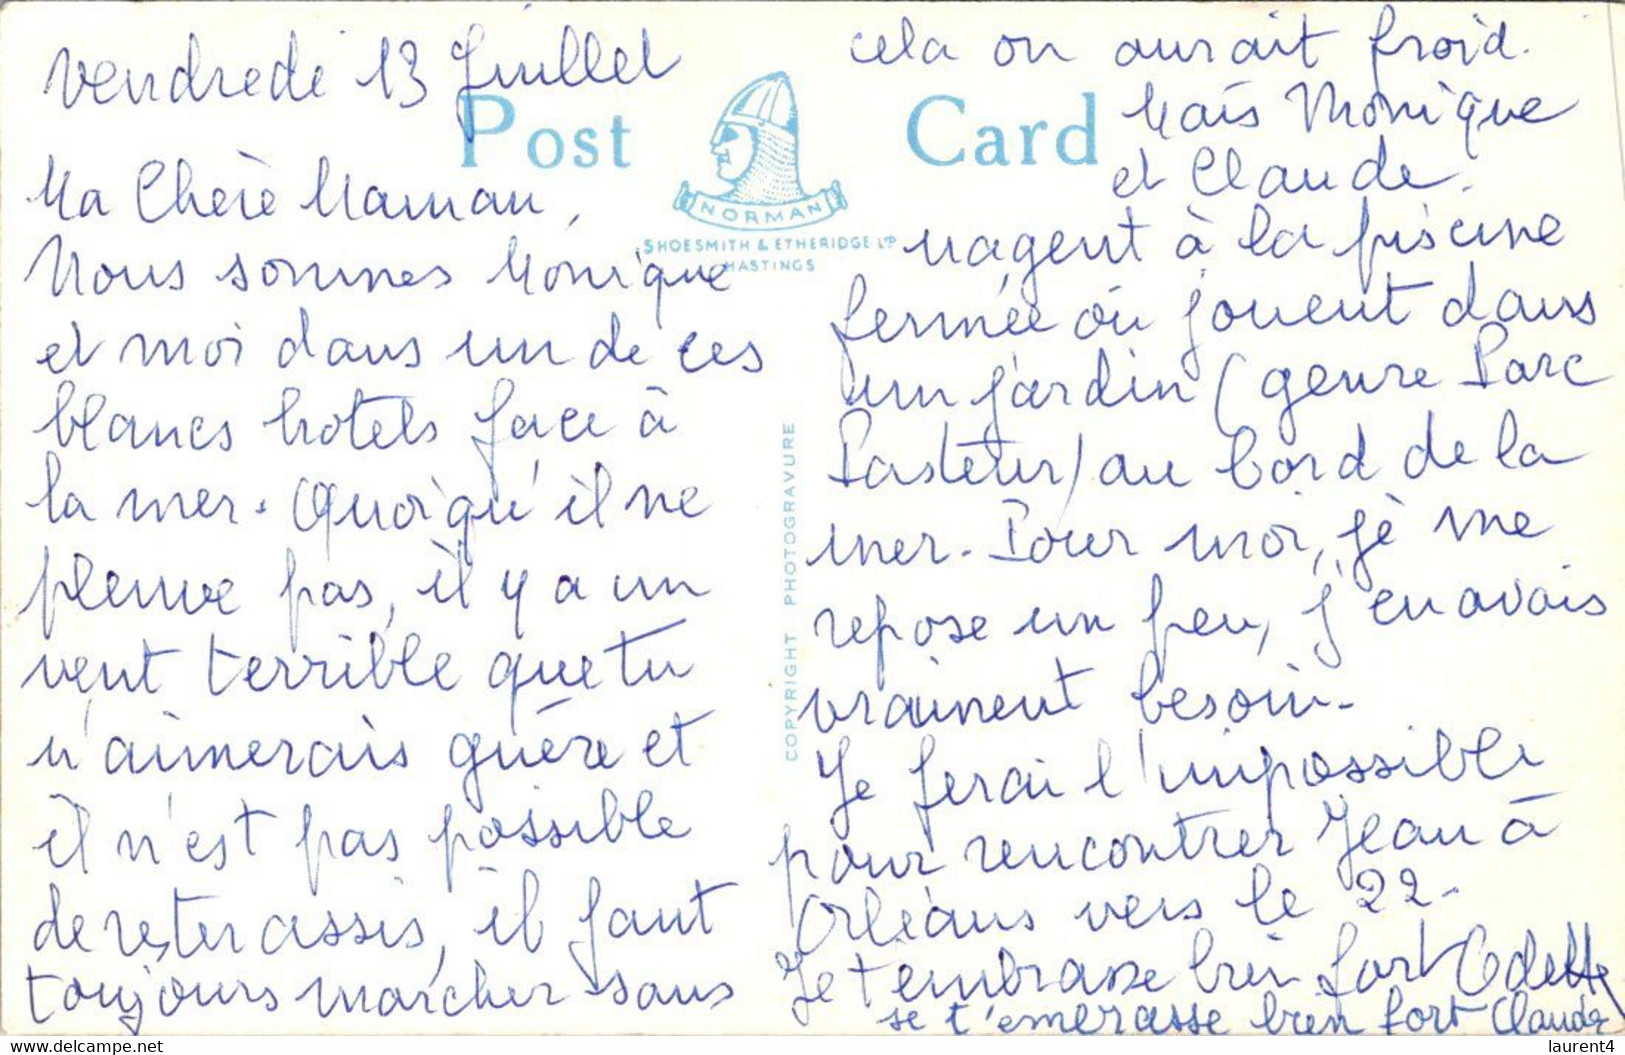 vendredi 13 Juillet
Post Card
NORMAN
SHOESMITH & ETHERIDGE LTD
HASTINGS
COPYRIGHT PHOTOGRAVURE
Ma Chère Maman,
Nous sommes Monique
et moi dans un de ces
blancs hotels face à
la mer. Quoiqu'il ne
pleuve pas, il y a un
vent terrible que tu
n'aimerais guère et
il n'est pas possible
de rester assis, il faut
toujours marcher sans
cela on aurait froid.
Mais Monique
et Claude
nagent à la piscine
fermée où jouent dans
un jardin (genre Parc
Pasteur) au bord de la
mer. Pour moi, je me
repose un peu, j'en avais
vraiment besoin.
Je ferai l'impossible
pour rencontrer Jean à
Orléans vers le 22.
Je t'embrasse bien fort Odette
se t'emerasse bien fort Claude
www.delcampe.net
laurent4